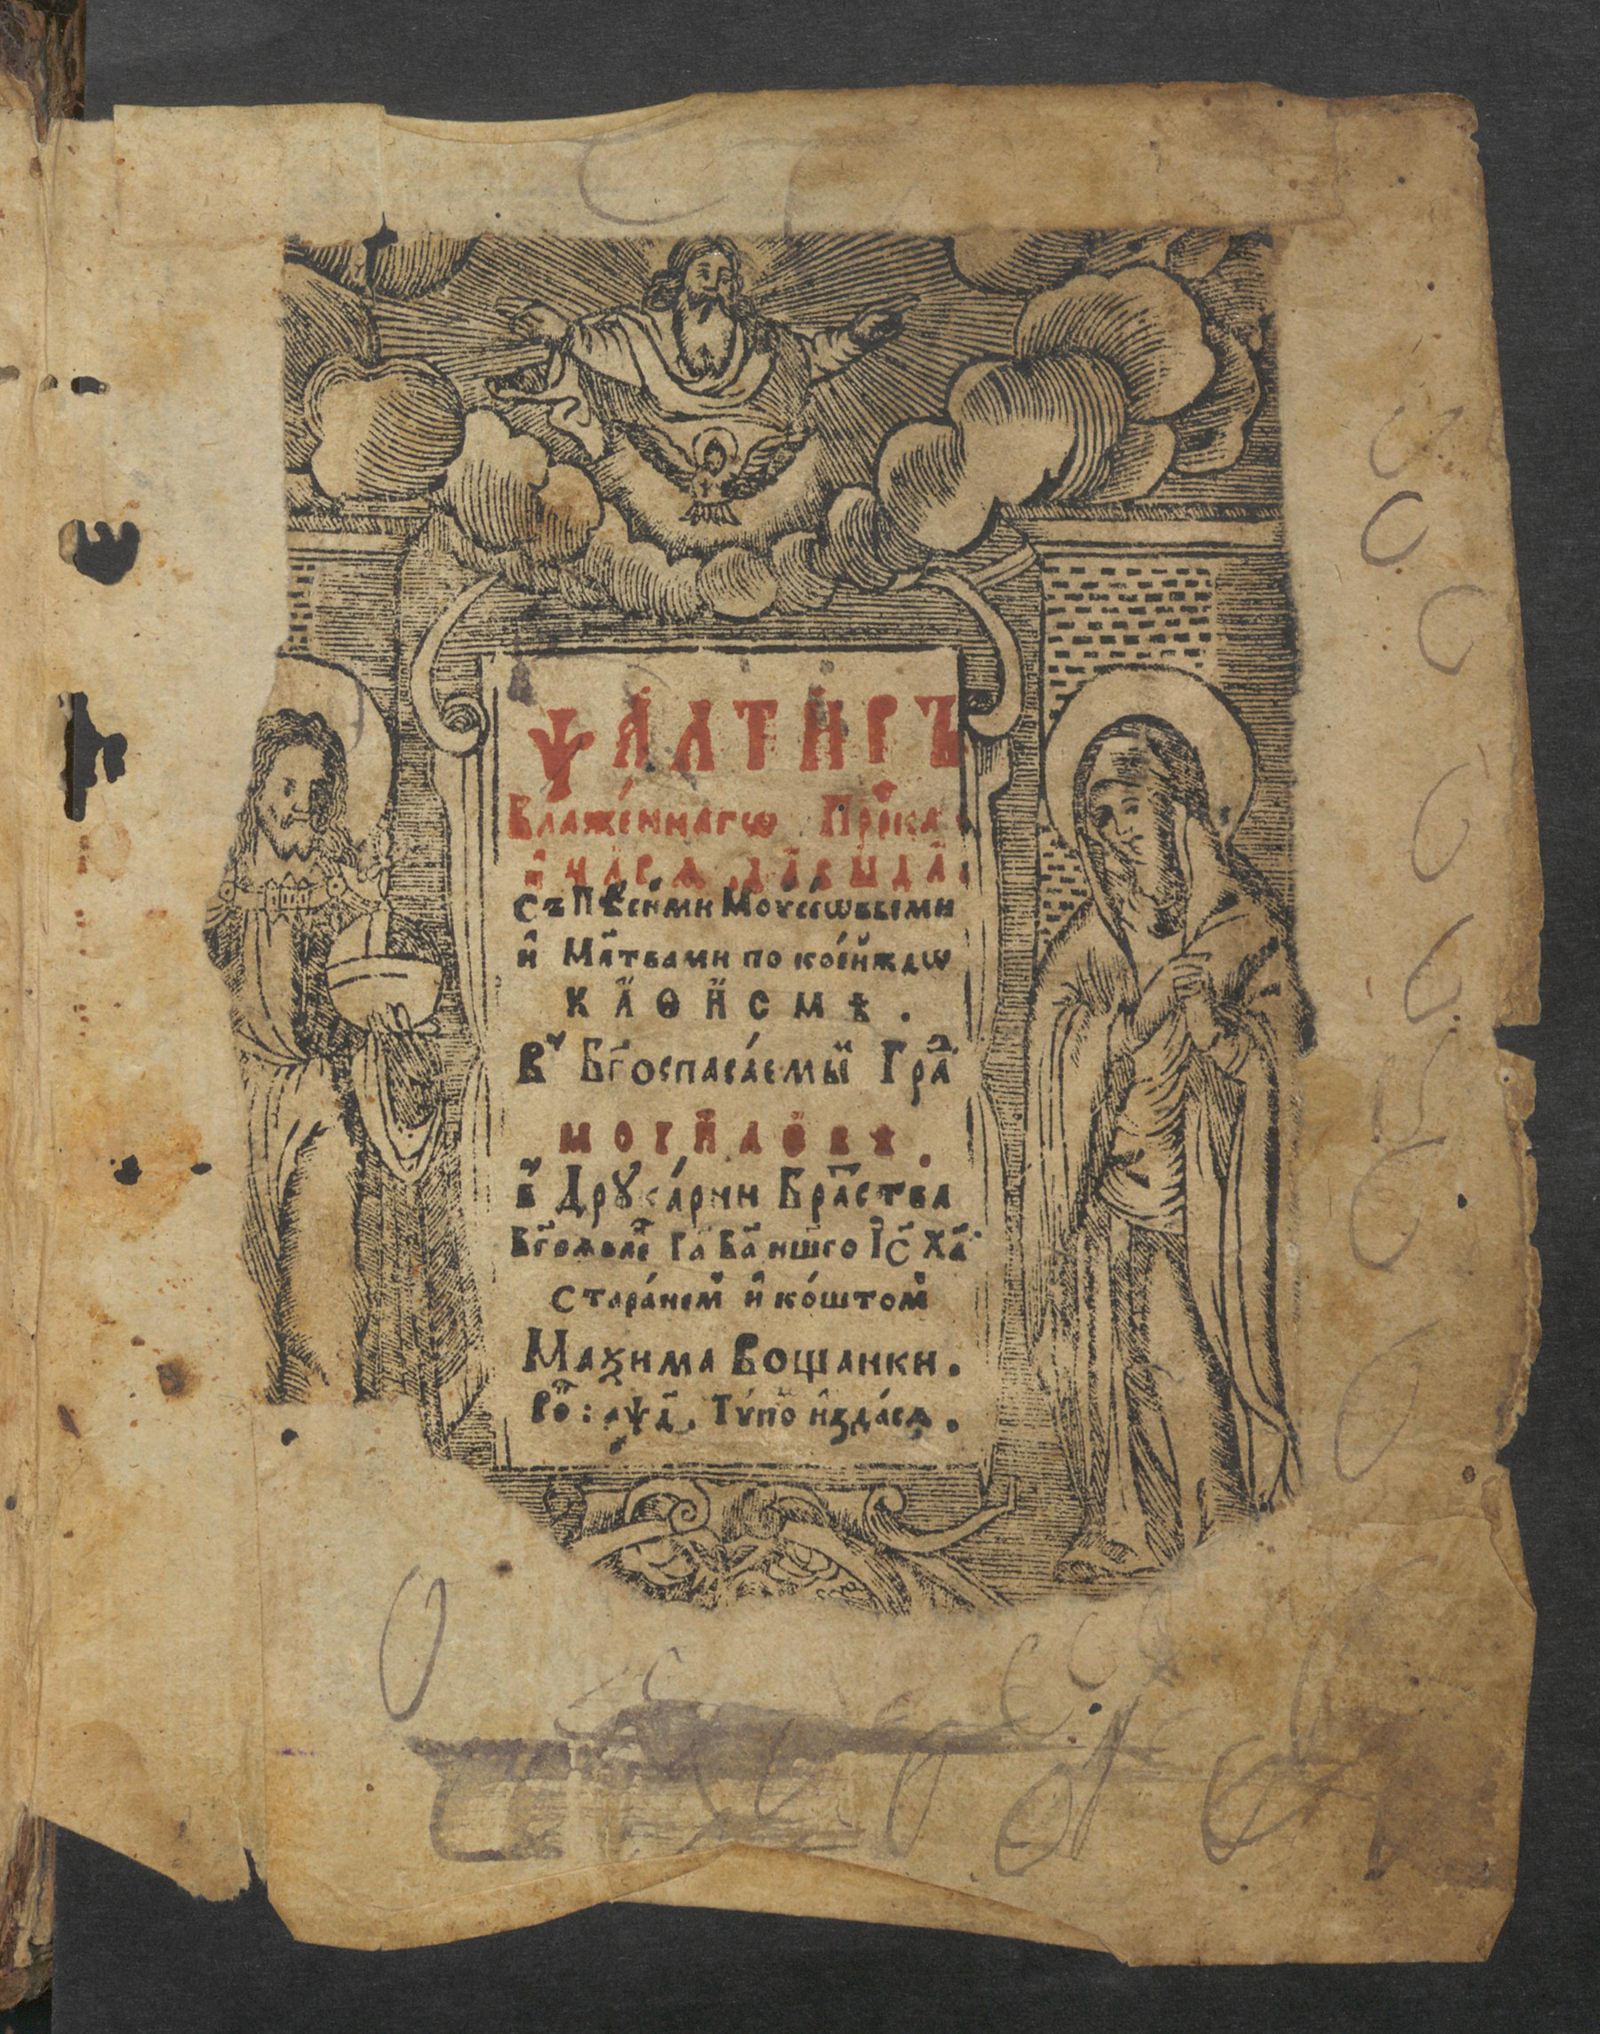 Ѱалтиръ
Блаженнагѡ Прⷪ҇ка
и҆ Царѧ Давыда.
Съ Пѣсньми Моѵсеѡвыми
и҆ Мл҃твами по коейждѡ
каѳисмѣ.
Въ Бг҃оспасаемый Граⷣ
Могилевѣ.
въ Дрꙋкарни Браⷮства
Бг҃оявлеⷩ Гⷭ҇а Ба҃ нш҃го І҆с҃ Ха҃
Стараніеⷨ и҆ коштоⷨ
Маѯима Вощанки.
Роⷦ: ҂аѱд҃. Тѵпоⷨ и҆здасѧ.